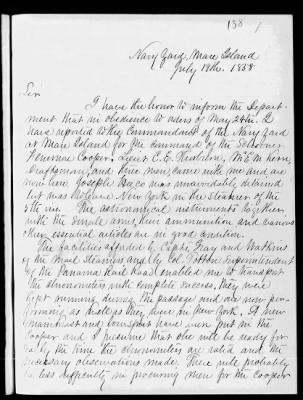 138 1
Navy Yard, Mare Island
July 19th. 1858
Sir
I have the honor to inform the Depart-
ment that in obedience to orders of May 26th. I
have reported to the Commandant of the Navy Yard
at Mare Island for the command of the Schooner
Fenimore Cooper. Lieut. C. E. Thorburn, Mr E M Kern,
Draftsman, and three men, came with me and are
now here Joseph Baco was unavoidably detained
but was to leave New York in the steamer of the
5th inst. The astronomical instruments together
with the small arms, their ammunition and various
other essential articles are in good condition.
The facilities afforded by Capts. Gray and Watkins
of the Mail Steamers and by Col. Totten Superintendent
of the Panama Rail Road enabled me to transport
the chronometers with complete success, they were
kept running during the passage and are now per-
forming as well as they were in New York. A new
mainmast and bowsprit have been put in the
Cooper and I presume that she will be ready for
sea by the time the chronometers are rated and the
necessary observations made. There will probably
be less difficulty in procuring men for the Cooper